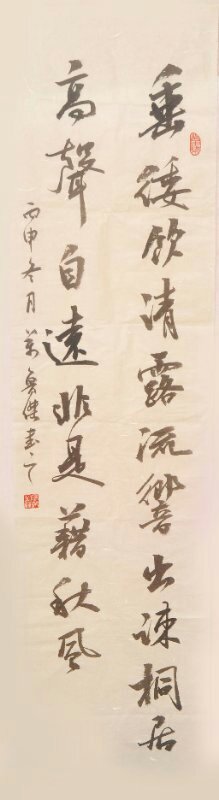 垂緌飲清露流響出疎桐居
高聲自遠非是藉秋風
丙申冬月萬魯傑書之